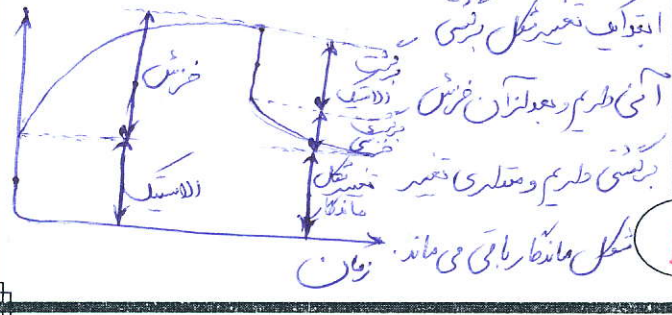 ابتدا یک تغییر شکل برگشتی
آنی داریم و بعد از آن خزش
برگشتی داریم و مقداری تغییر
شکل ماندگار باقی می‌ماند.
خزش
الاستیک
برگشت
الاستیک
برگشت
خزشی
تغییر شکل
ماندگار
زمان